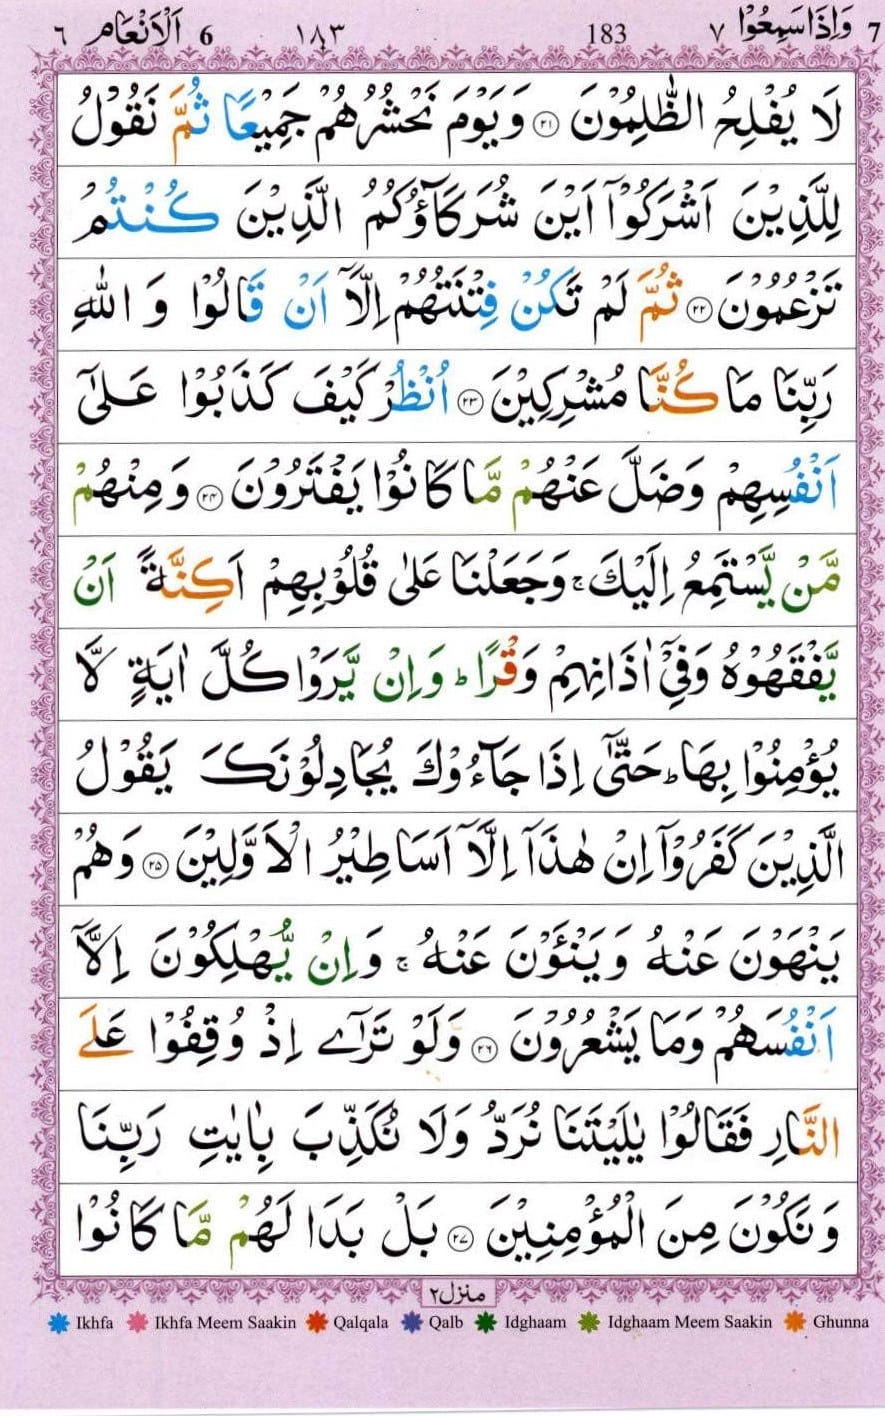 7 وَاِذَا سَمِعُوْا ٧ 183 ١٨٣ 6 اَلْاَنْعَام ٦
لَا يُفْلِحُ الظّٰلِمُوْنَ ۝٢١ وَيَوْمَ نَحْشُرُهُمْ جَمِيْعًا ثُمَّ نَقُوْلُ
لِلَّذِيْنَ اَشْرَكُوْٓا اَيْنَ شُرَكَآؤُكُمُ الَّذِيْنَ كُنْتُمْ
تَزْعُمُوْنَ ۝٢٢ ثُمَّ لَمْ تَكُنْ فِتْنَتُهُمْ اِلَّآ اَنْ قَالُوْا وَ اللّٰهِ
رَبِّنَا مَا كُنَّا مُشْرِكِيْنَ ۝٢٣ اُنْظُرْ كَيْفَ كَذَبُوْا عَلٰٓى
اَنْفُسِهِمْ وَضَلَّ عَنْهُمْ مَّا كَانُوْا يَفْتَرُوْنَ ۝٢٤ وَمِنْهُمْ
مَّنْ يَّسْتَمِعُ اِلَيْكَ ۚ وَجَعَلْنَا عَلٰى قُلُوْبِهِمْ اَكِنَّةً اَنْ
يَّفْقَهُوْهُ وَفِيْٓ اٰذَانِهِمْ وَقْرًا ؕ وَاِنْ يَّرَوْا كُلَّ اٰيَةٍ لَّا
يُؤْمِنُوْا بِهَا ؕ حَتّٰٓى اِذَا جَآءُوْكَ يُجَادِلُوْنَكَ يَقُوْلُ
الَّذِيْنَ كَفَرُوْٓا اِنْ هٰذَآ اِلَّآ اَسَاطِيْرُ الْاَوَّلِيْنَ ۝٢٥ وَهُمْ
يَنْهَوْنَ عَنْهُ وَيَنْـَٔوْنَ عَنْهُ ۚ وَاِنْ يُّهْلِكُوْنَ اِلَّآ
اَنْفُسَهُمْ وَمَا يَشْعُرُوْنَ ۝٢٦ وَلَوْ تَرٰٓى اِذْ وُقِفُوْا عَلَى
النَّارِ فَقَالُوْا يٰلَيْتَنَا نُرَدُّ وَلَا نُكَذِّبَ بِاٰيٰتِ رَبِّنَا
وَنَكُوْنَ مِنَ الْمُؤْمِنِيْنَ ۝٢٧ بَلْ بَدَا لَهُمْ مَّا كَانُوْا
منزل ٢
Ikhfa Ikhfa Meem Saakin Qalqala Qalb Idghaam Idghaam Meem Saakin Ghunna